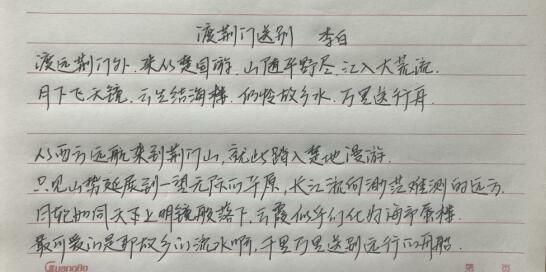 渡荆门送别 李白
渡远荆门外,来从楚国游.山随平野尽,江入大荒流.
月下飞天镜,云生结海楼.仍怜故乡水,万里送行舟.
从西方远航来到荆门山,就此踏入楚地漫游.
只见山势延展到一望无际的平原,长江流向渺茫难测的远方.
月轮如同天上明镜般落下,云霞似乎幻化为海市蜃楼.
最可爱的是那故乡的流水啊,千里万里送别远行的舟船.
GuangBo 第 页